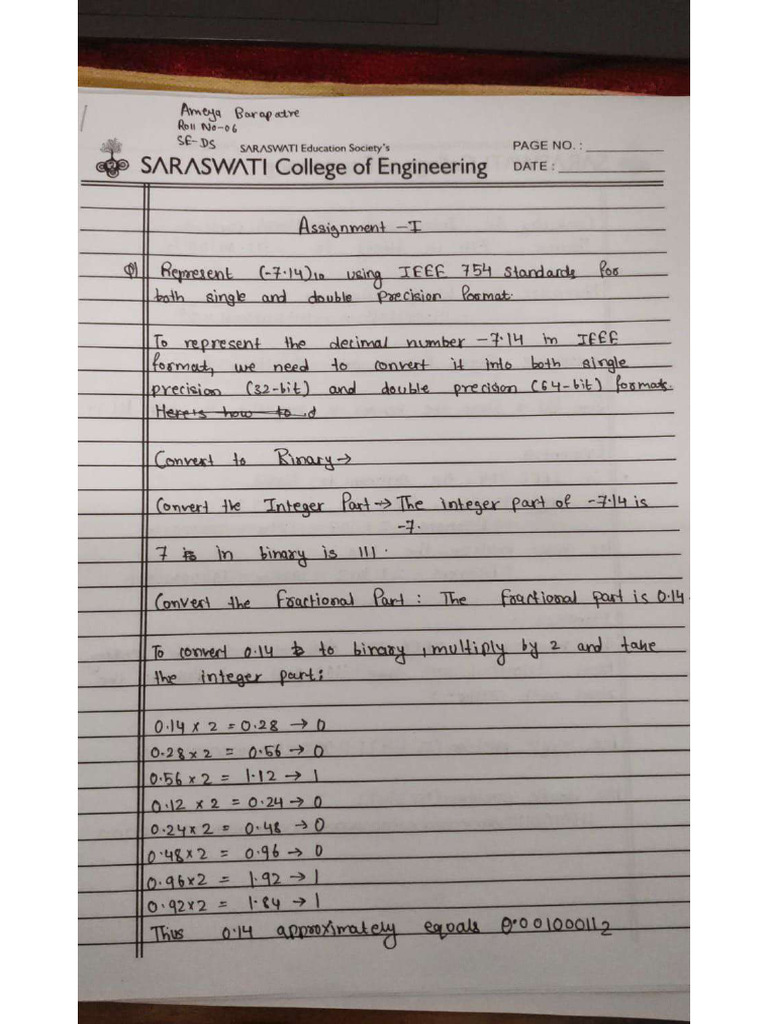 Ameya Barapatre
Roll No-06
SE-DS
SARASWATI Education Society's
SARASWATI College of Engineering
PAGE NO. :
DATE :
Assignment - I
Q1) Represent (-7.14)10 using IEEE 754 standards for
both single and double precision format.
To represent the decimal number -7.14 in IEEE
format, we need to convert it into both single
precision (32-bit) and double precision (64-bit) formats.
Here's how to d
Convert to Binary→
Convert the Integer Part→ The integer part of -7.14 is
-7.
7 is in binary is 111.
Convert the Fractional Part : The fractional part is 0.14
To convert 0.14 to binary, multiply by 2 and take
the integer part:
0.14 x 2 = 0.28 → 0
0.28 x 2 = 0.56 → 0
0.56 x 2 = 1.12 → 1
0.12 x 2 = 0.24 → 0
0.24 x 2 = 0.48 → 0
0.48 x 2 = 0.96 → 0
0.96 x 2 = 1.92 → 1
0.92 x 2 = 1.84 → 1
Thus 0.14 approximately equals 0.001000112